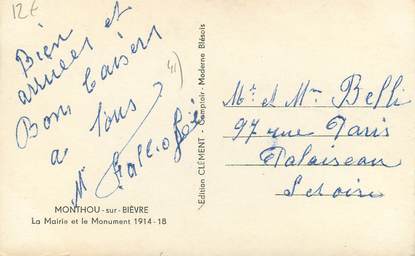 12€
Bien
arrivées et
Bons baisers
à tous
M
41)
MONTHOU-sur-BIÈVRE
La Mairie et le Monument 1914-18
Edition CLÉMENT - Comptoir - Moderne Blésois
Mr et Mme Belli
97 rue Paris
Palaiseau
Set oise